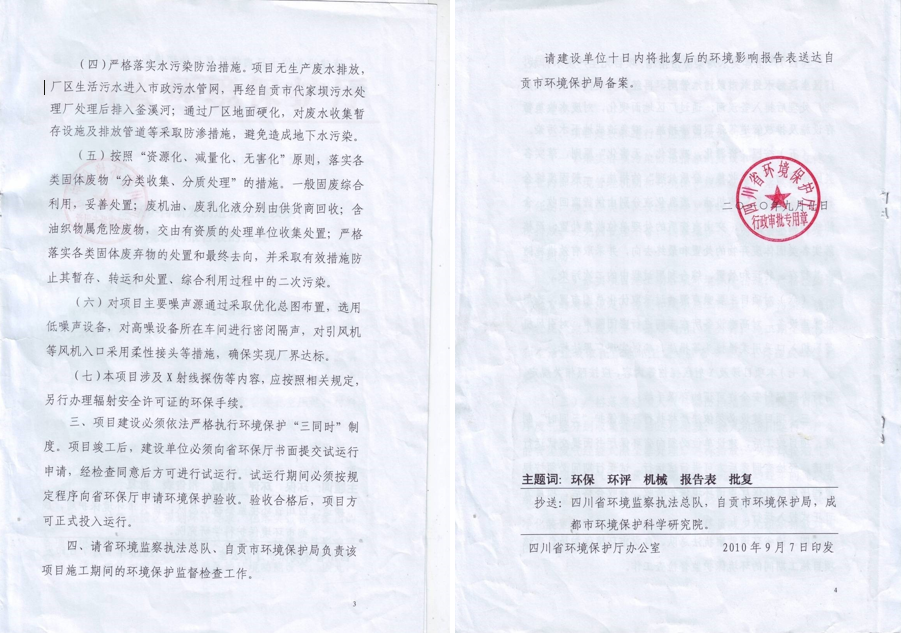 （四）严格落实水污染防治措施。项目无生产废水排放，
厂区生活污水进入市政污水管网，再经自贡市代家坝污水处
理厂处理后排入釜溪河；通过厂区地面硬化，对废水收集暂
存设施及排放管道等采取防渗措施，避免造成地下水污染。
（五）按照“资源化、减量化、无害化”原则，落实各
类固体废物“分类收集、分质处理”的措施。一般固废综合
利用，妥善处置；废机油、废乳化液分别由供货商回收；含
油织物属危险废物，交由有资质的处理单位收集处置；严格
落实各类固体废弃物的处置和最终去向，并采取有效措施防
止其暂存、转运和处置、综合利用过程中的二次污染。
（六）对项目主要噪声源通过采取优化总图布置，选用
低噪声设备，对高噪设备所在车间进行密闭隔声，对引风机
等风机入口采用柔性接头等措施，确保实现厂界达标。
（七）本项目涉及X射线探伤等内容，应按照相关规定，
另行办理辐射安全许可证的环保手续。
三、项目建设必须依法严格执行环境保护“三同时”制
度。项目竣工后，建设单位必须向省环保厅书面提交试运行
申请，经检查同意后方可进行试运行。试运行期间必须按规
定程序向省环保厅申请环境保护验收。验收合格后，项目方
可正式投入运行。
四、请省环境监察执法总队、自贡市环境保护局负责该
项目施工期间的环境保护监督检查工作。
3
请建设单位十日内将批复后的环境影响报告表送达自
贡市环境保护局备案。
四川省环境保护厅
二〇一〇年九月 日
行政审批专用章
主题词：环保 环评 机械 报告表 批复
抄送：四川省环境监察执法总队，自贡市环境保护局，成
都市环境保护科学研究院。
四川省环境保护厅办公室 2010年9月7日印发
4